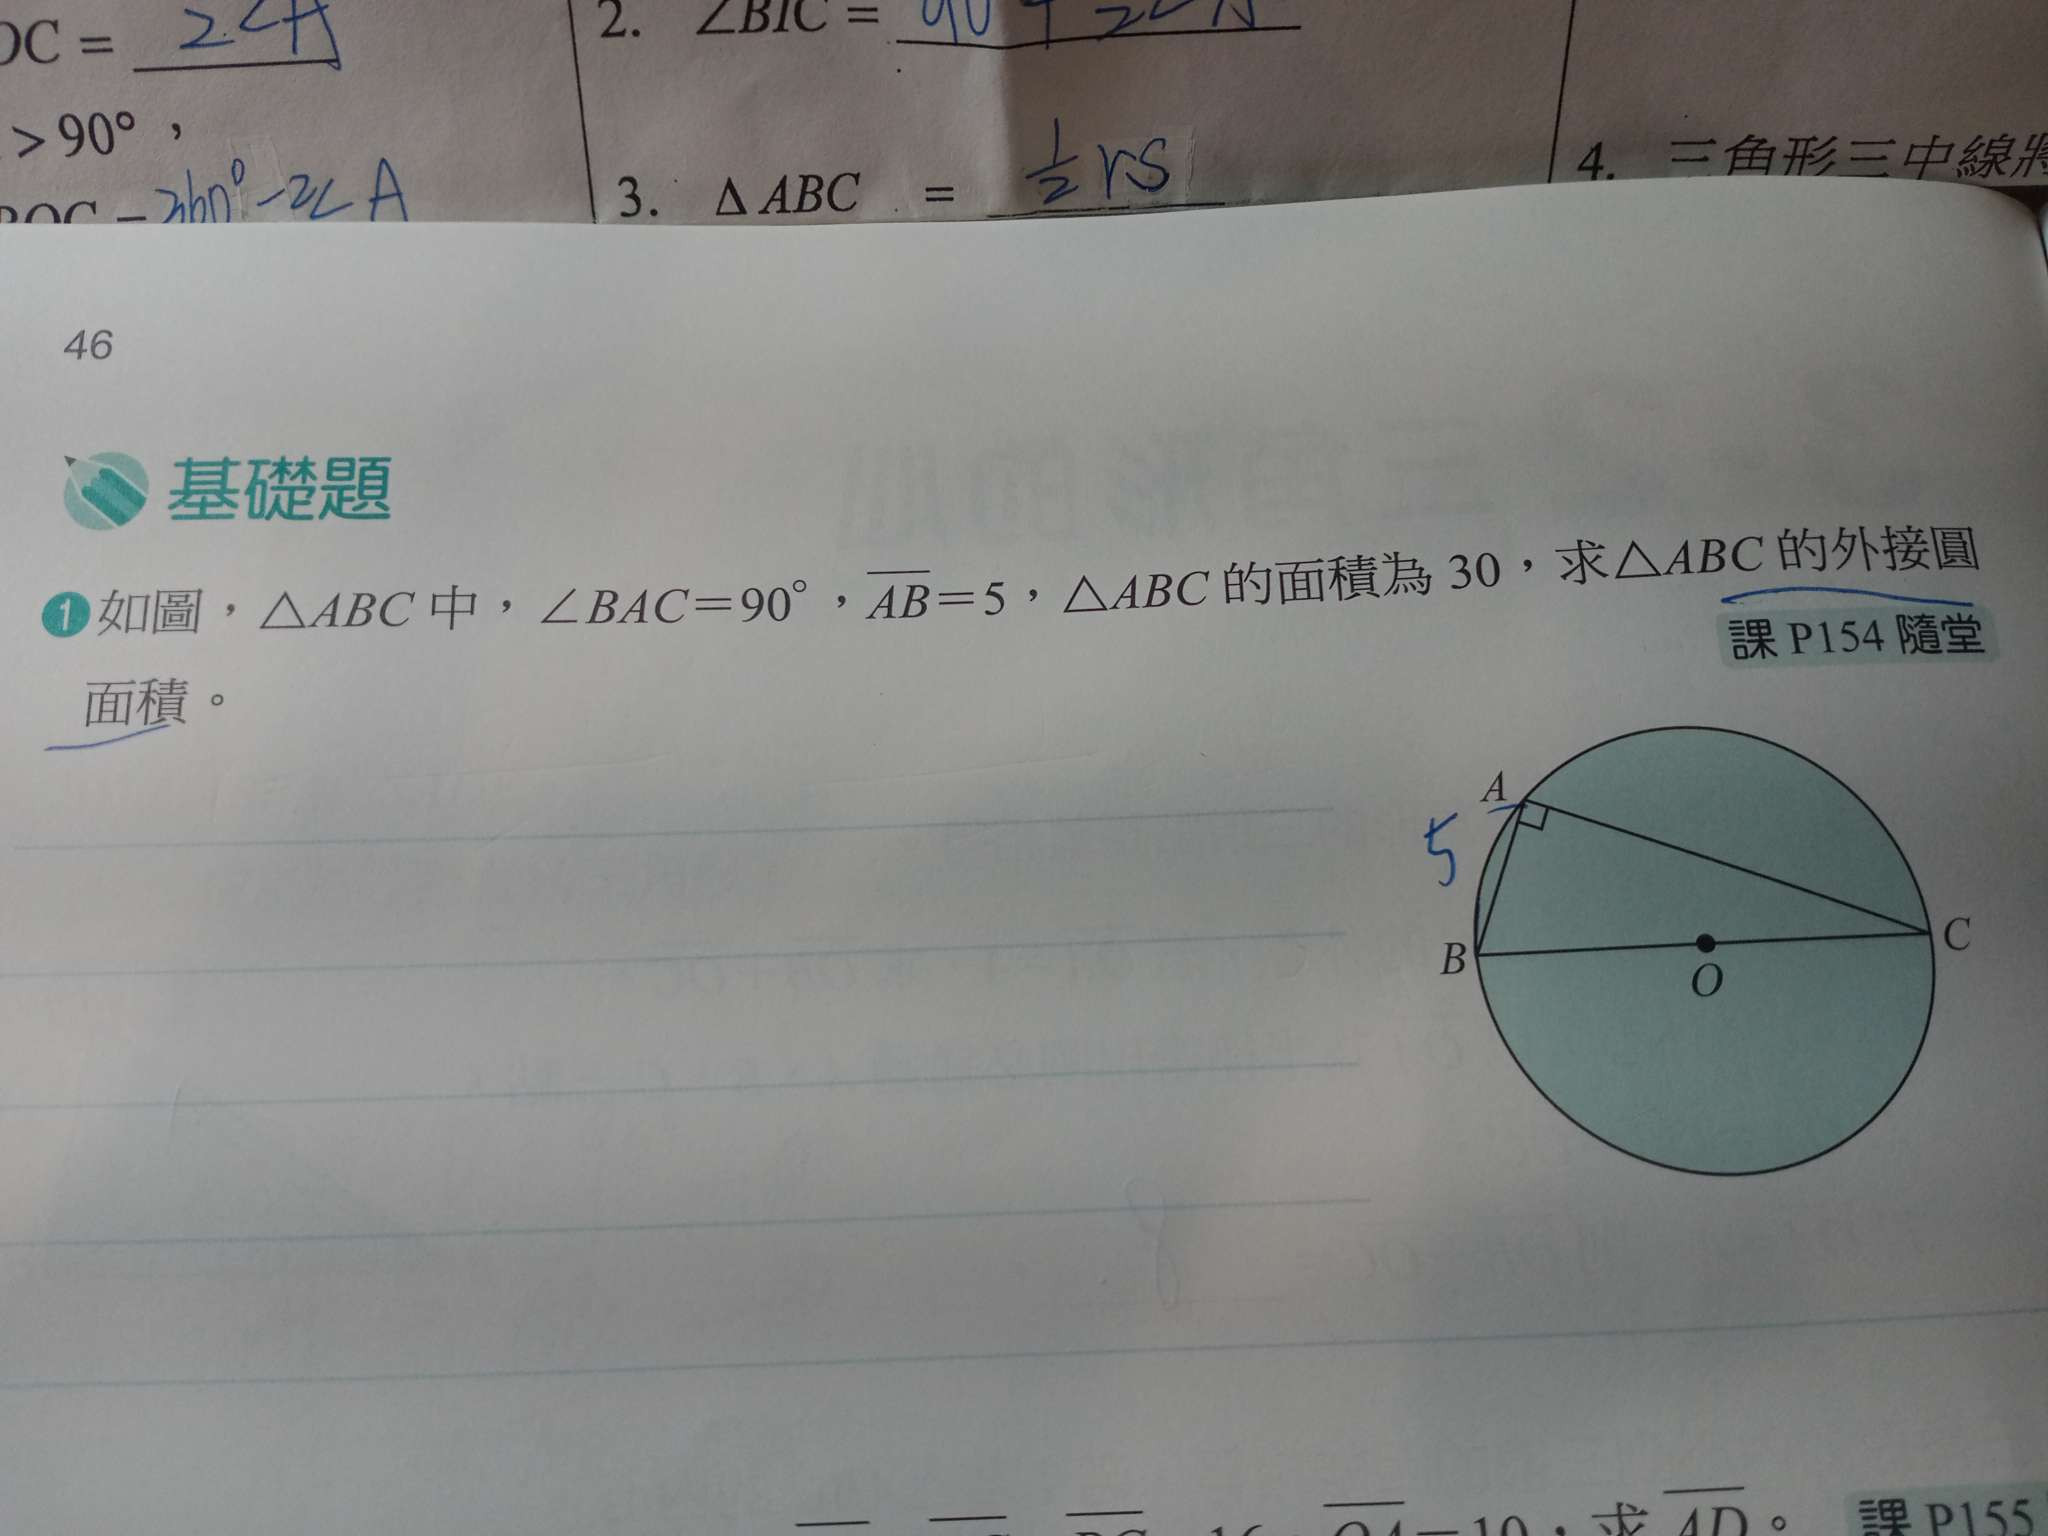 OC = 2∠A
2. ∠BIC =
> 90°，
3. △ABC = ½rs
4. 三角形三中線將
BOC = 360° - 2∠A
46
基礎題
1 如圖，△ABC 中，∠BAC＝90°，AB＝5，△ABC 的面積為 30，求△ABC 的外接圓
課 P154 隨堂
面積。
A
5
B
O
C
16，OA＝10，求 AD。 課 P155